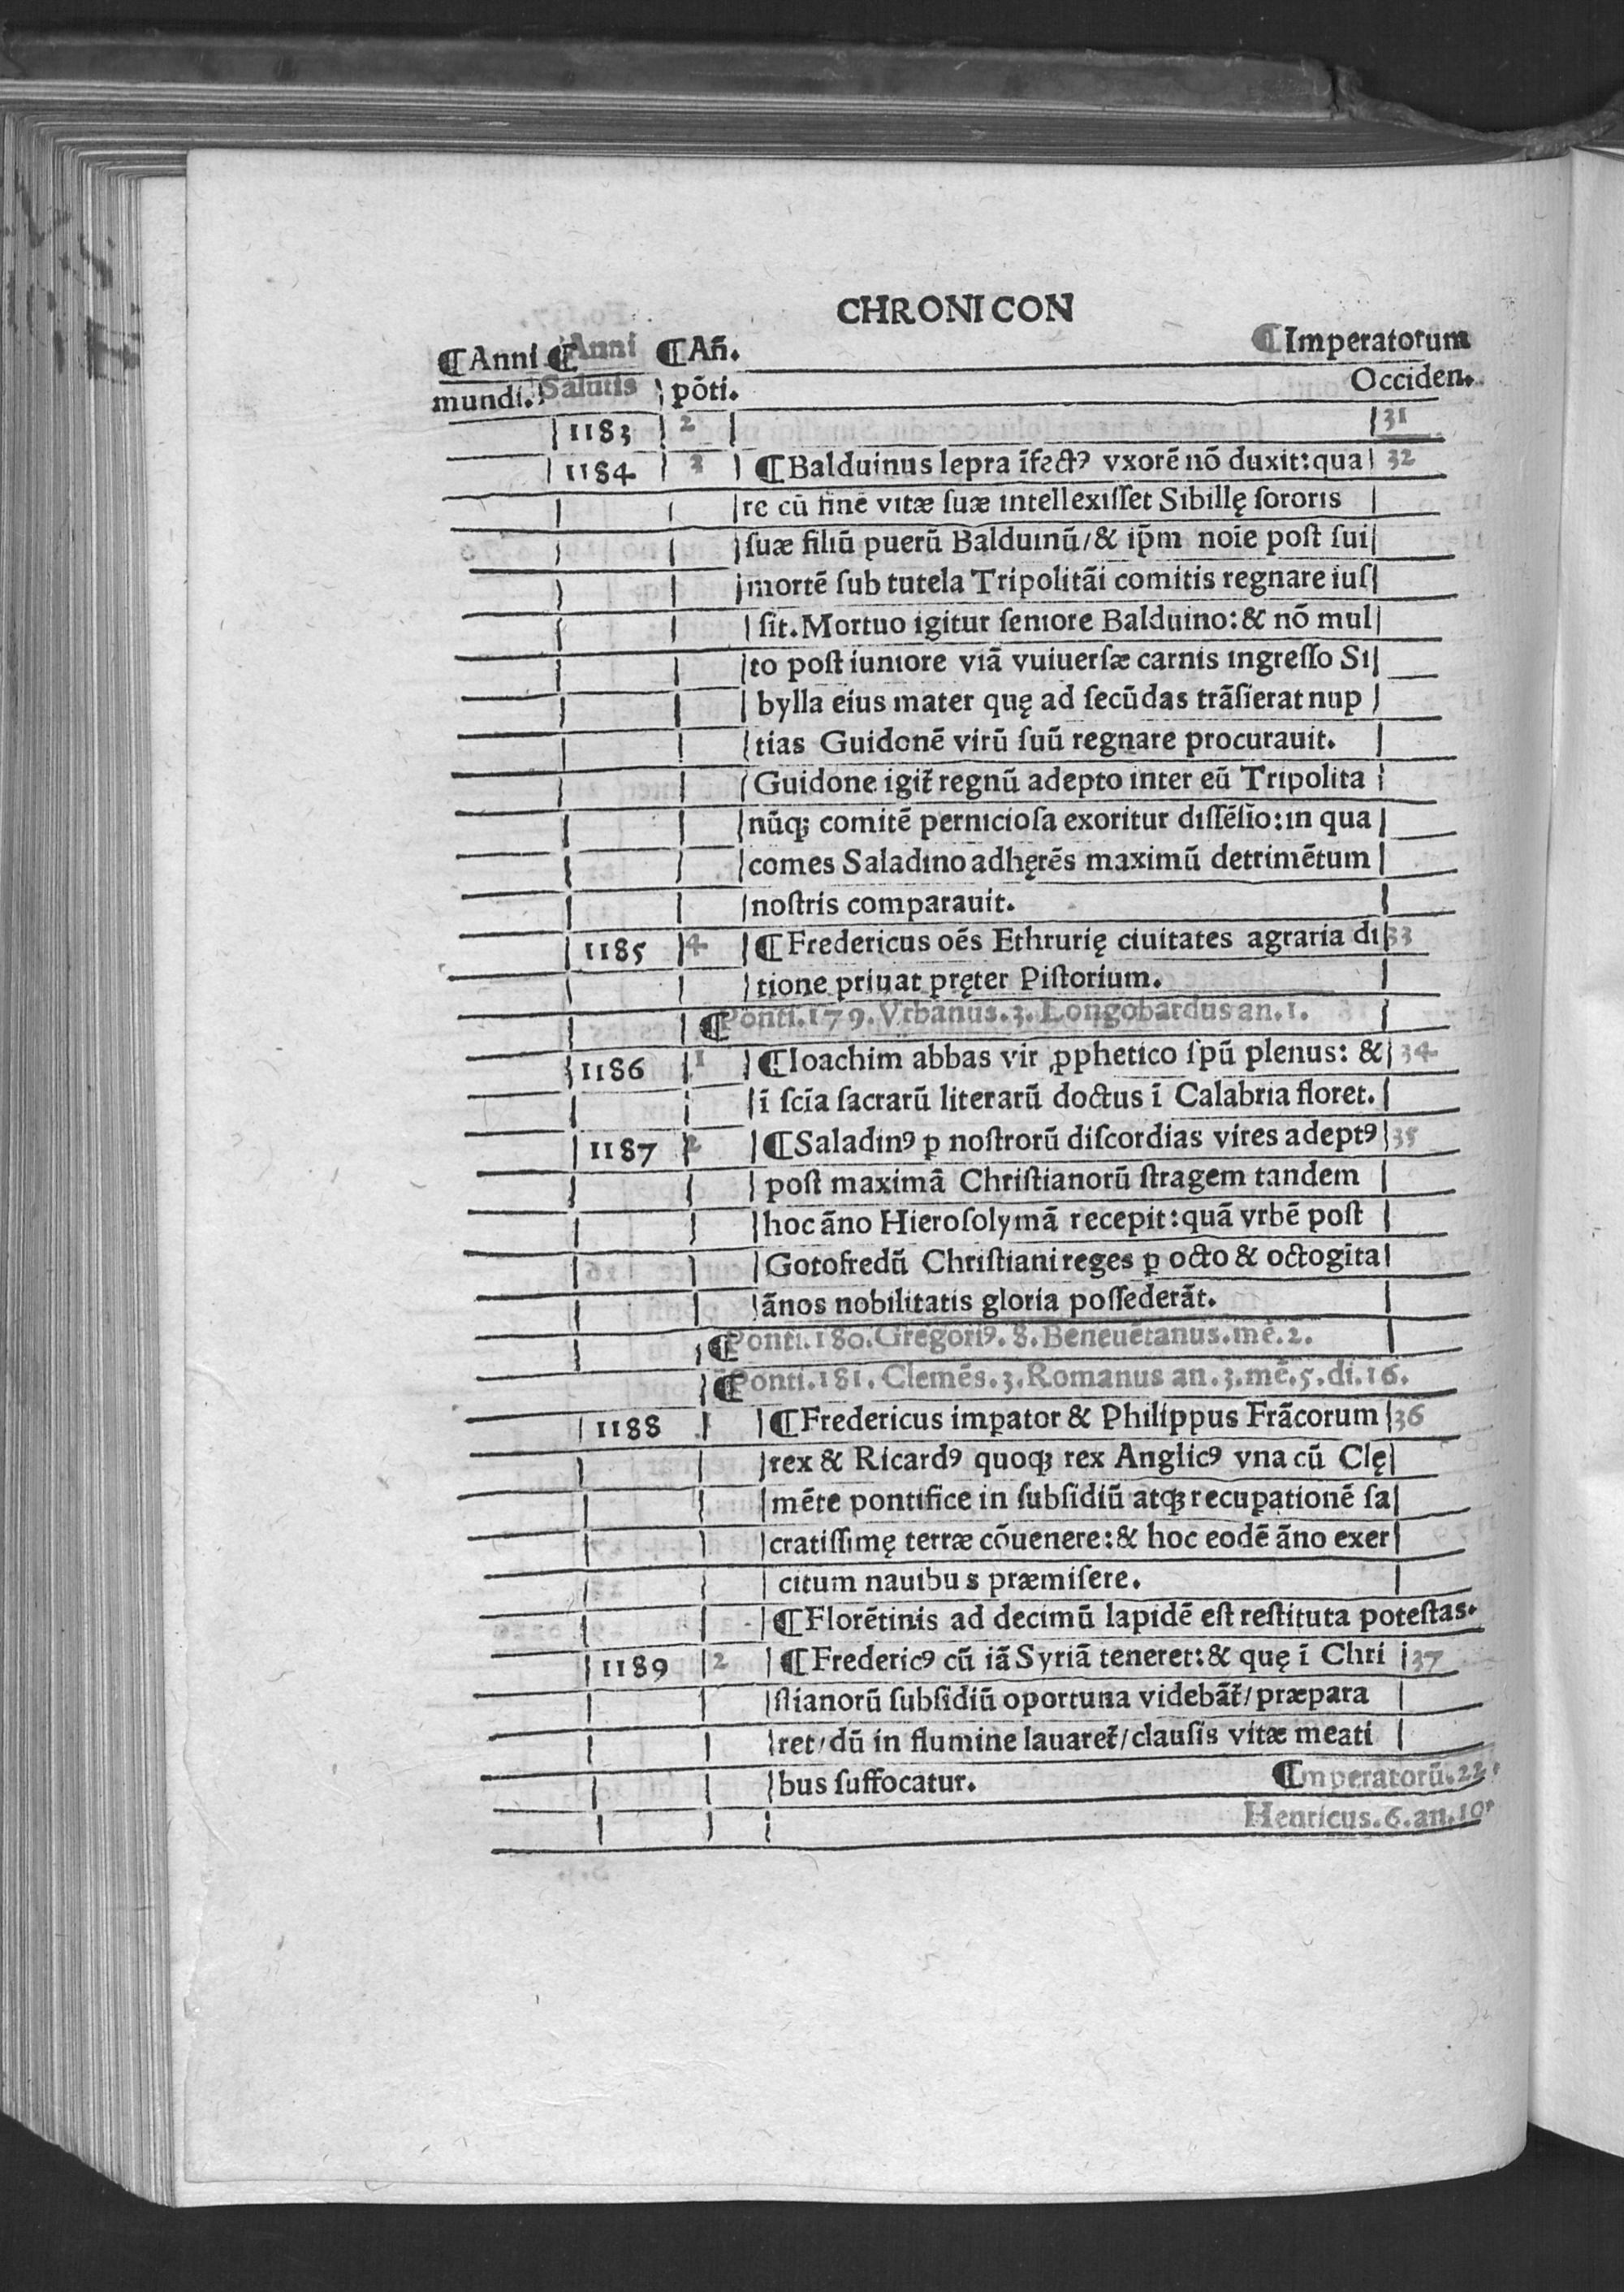 CHRONICON
¶Anni ¶Anni ¶Añ. ¶Imperatorum
mundi. Salutis põti. Occiden.
1183 2 31
1184 3 ¶Balduinus lepra ĩfectꝰ vxorẽ nõ duxit:qua 32
re cũ finẽ vitæ ſuæ intellexiſſet Sibillę ſororis
ſuæ filiũ puerũ Balduinũ/& ip̃m noĩe poſt ſui
mortẽ ſub tutela Tripolitãi comitis regnare iuſ
ſit.Mortuo igitur ſeniore Balduino:& nõ mul
to poſt iuniore viã vuiuerſæ carnis ingreſſo Si
bylla eius mater quę ad ſecũdas trãſierat nup
tias Guidonẽ virũ ſuũ regnare procurauit.
Guidone igit̃ regnũ adepto inter eũ Tripolita
nũq; comitẽ pernicioſa exoritur diſſẽſio:in qua
comes Saladino adhęrẽs maximũ detrimẽtum
noſtris comparauit.
1185 4 ¶Fredericus oẽs Ethrurię ciuitates agraria di 33
tione priuat pręter Piſtorium.
¶Ponti.179.Vrbanus.3.Longobardus an.1.
1186 1 ¶Ioachim abbas vir ꝓphetico ſpũ plenus: & 34
ĩ ſcĩa ſacrarũ literarũ doctus ĩ Calabria floret.
1187 2 ¶Saladinꝰ ꝑ noſtrorũ diſcordias vires adeptꝰ 35
poſt maximã Chriſtianorũ ſtragem tandem
hoc ãno Hieroſolymã recepit:quã vrbẽ poſt
Gotofredũ Chriſtiani reges ꝑ octo & octogĩta
ãnos nobilitatis gloria poſſederãt.
¶Ponti.180.Gregoriꝰ.8.Beneuẽtanus.mẽ.2.
¶Ponti.181.Clemẽs.3.Romanus an.3.mẽ.5.di.16.
1188 1 ¶Fredericus imꝑator & Philippus Frãcorum 36
rex & Ricardꝰ quoq; rex Anglicꝰ vna cũ Clę
mẽte pontifice in ſubſidiũ atq; recuꝑationẽ ſa
cratiſſimę terræ cõuenere:& hoc eodẽ ãno exer
citum nauibus præmiſere.
¶Florẽtinis ad decimũ lapidẽ eſt reſtituta poteſtas.
1189 2 ¶Fredericꝰ cũ iã Syriã teneret:& quę ĩ Chri 37
ſtianorũ ſubſidiũ oportuna videbãt̃/præpara
ret/dũ in flumine lauaret̃/clauſis vitæ meati
bus ſuffocatur. ¶Imperatorũ.22.
Henricus.6.an.10.